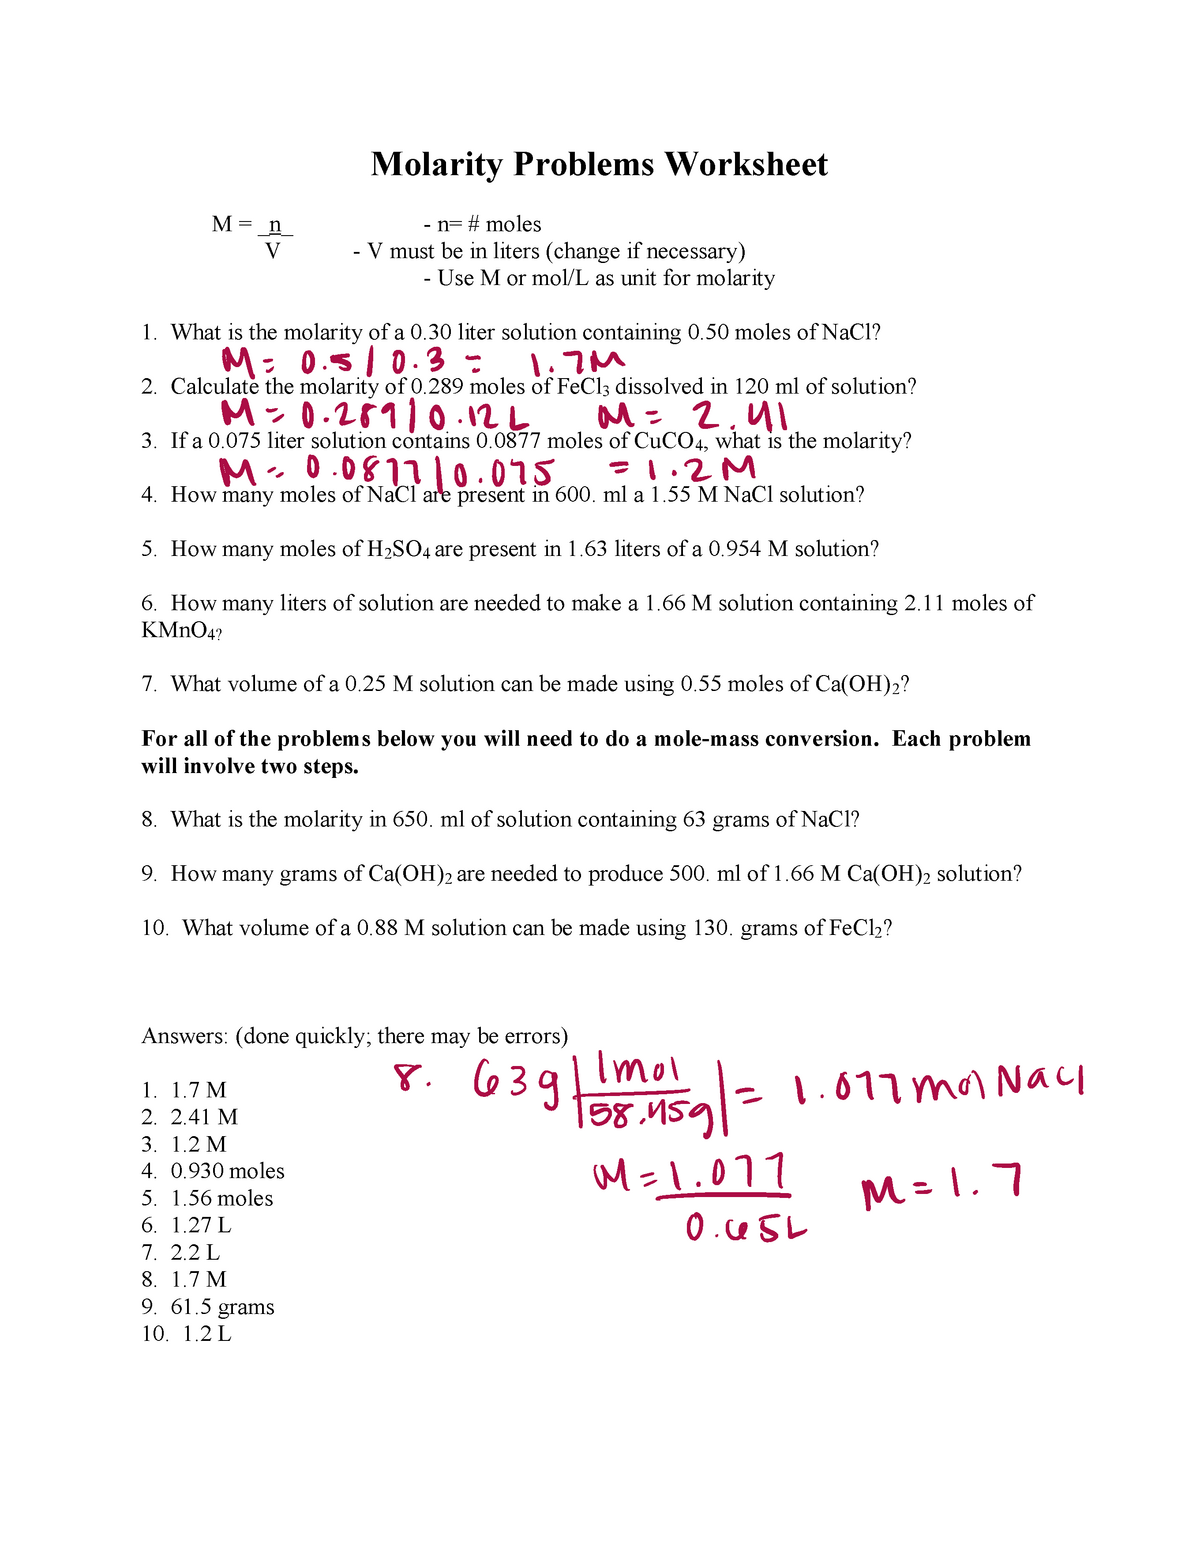 Molarity Problems Worksheet
M = _n_ - n= # moles
V - V must be in liters (change if necessary)
- Use M or mol/L as unit for molarity
1. What is the molarity of a 0.30 liter solution containing 0.50 moles of NaCl?
M = 0.5 / 0.3 = 1.7M
2. Calculate the molarity of 0.289 moles of FeCl3 dissolved in 120 ml of solution?
M = 0.289 / 0.12 L M = 2.41
3. If a 0.075 liter solution contains 0.0877 moles of CuCO4, what is the molarity?
M = 0.0877 / 0.075 = 1.2 M
4. How many moles of NaCl are present in 600. ml a 1.55 M NaCl solution?
5. How many moles of H2SO4 are present in 1.63 liters of a 0.954 M solution?
6. How many liters of solution are needed to make a 1.66 M solution containing 2.11 moles of
KMnO4?
7. What volume of a 0.25 M solution can be made using 0.55 moles of Ca(OH)2?
For all of the problems below you will need to do a mole-mass conversion. Each problem
will involve two steps.
8. What is the molarity in 650. ml of solution containing 63 grams of NaCl?
9. How many grams of Ca(OH)2 are needed to produce 500. ml of 1.66 M Ca(OH)2 solution?
10. What volume of a 0.88 M solution can be made using 130. grams of FeCl2?
Answers: (done quickly; there may be errors)
8. 63g | 1mol
58.45g | = 1.077 mol NaCl
M = 1.077
0.65L
M = 1.7
1. 1.7 M
2. 2.41 M
3. 1.2 M
4. 0.930 moles
5. 1.56 moles
6. 1.27 L
7. 2.2 L
8. 1.7 M
9. 61.5 grams
10. 1.2 L